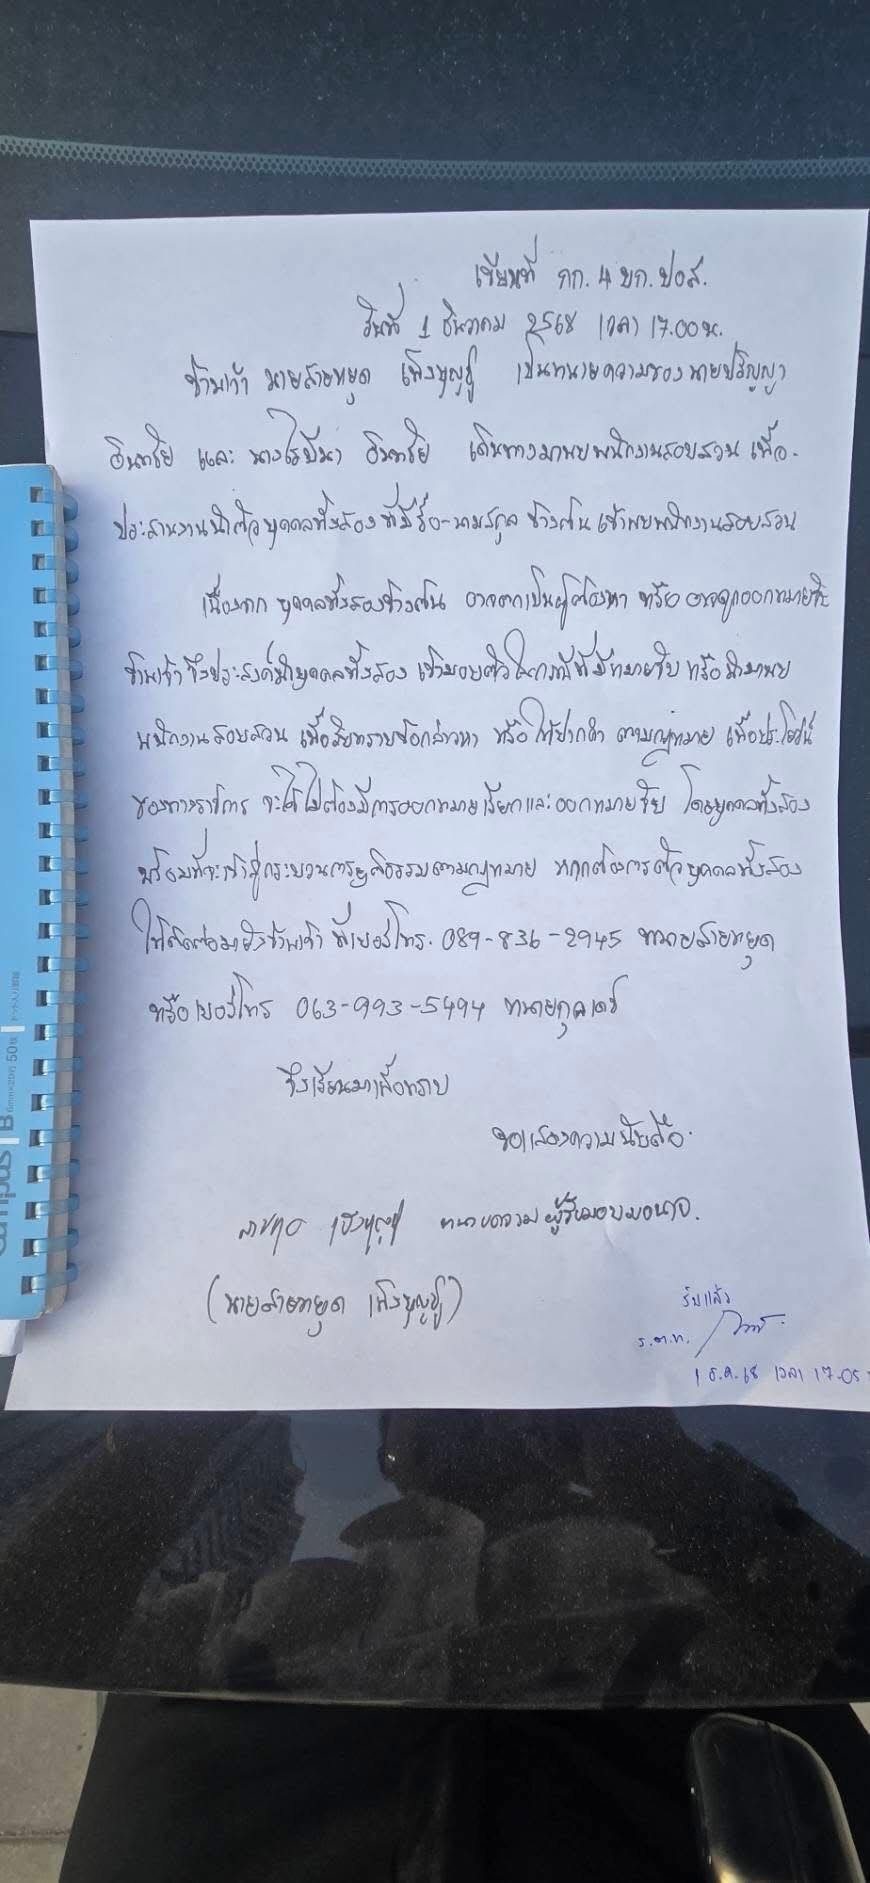 เขียนที่ กก. 4 บก. ปอศ.
วันที่ 1 ธันวาคม 2568 เวลา 17.00 น.
ข้าพเจ้า นายสายหยุด เพ็งบุญชู เป็นทนายความของ นายปริญญา
อินทรีย์ และ นาง อินทรีย์ เดินทางมาพบพนักงานสอบสวน เพื่อ
ประสานงานนำตัวบุคคลทั้งสอง ที่มีชื่อ-นามสกุล ข้างต้น เข้าพบพนักงานสอบสวน
เนื่องจาก บุคคลทั้งสองข้างต้น อาจตกเป็นผู้ต้องหา หรือ อาจถูกออกหมายจับ
ข้าพเจ้า จึงประสงค์นำบุคคลทั้งสอง เข้ามอบตัวในกรณีที่มีหมายจับ หรือนำมาพบ
พนักงานสอบสวน เพื่อรับทราบข้อกล่าวหา หรือ ให้ปากคำ ตามกฎหมาย เพื่อประโยชน์
ของทางราชการ จะได้ไม่ต้องมีการออกหมายเรียกและออกหมายจับ โดยบุคคลทั้งสอง
พร้อมที่จะเข้าสู่กระบวนการยุติธรรมตามกฎหมาย หากต้องการตัวบุคคลทั้งสอง
ให้ติดต่อมายังข้าพเจ้า ที่เบอร์โทร. 089-836-2945 ทนายสายหยุด
หรือเบอร์โทร 063-993-5494 ทนายกุลเดช
จึงเรียนมาเพื่อทราบ
ขอแสดงความนับถือ
สายหยุด เพ็งบุญชู ทนายความผู้รับมอบอำนาจ.
(นายสายหยุด เพ็งบุญชู)
รับแล้ว
ร.ต.ท.
1 ธ.ค. 68 เวลา 17.05
campus
B
6mm×29行 50枚